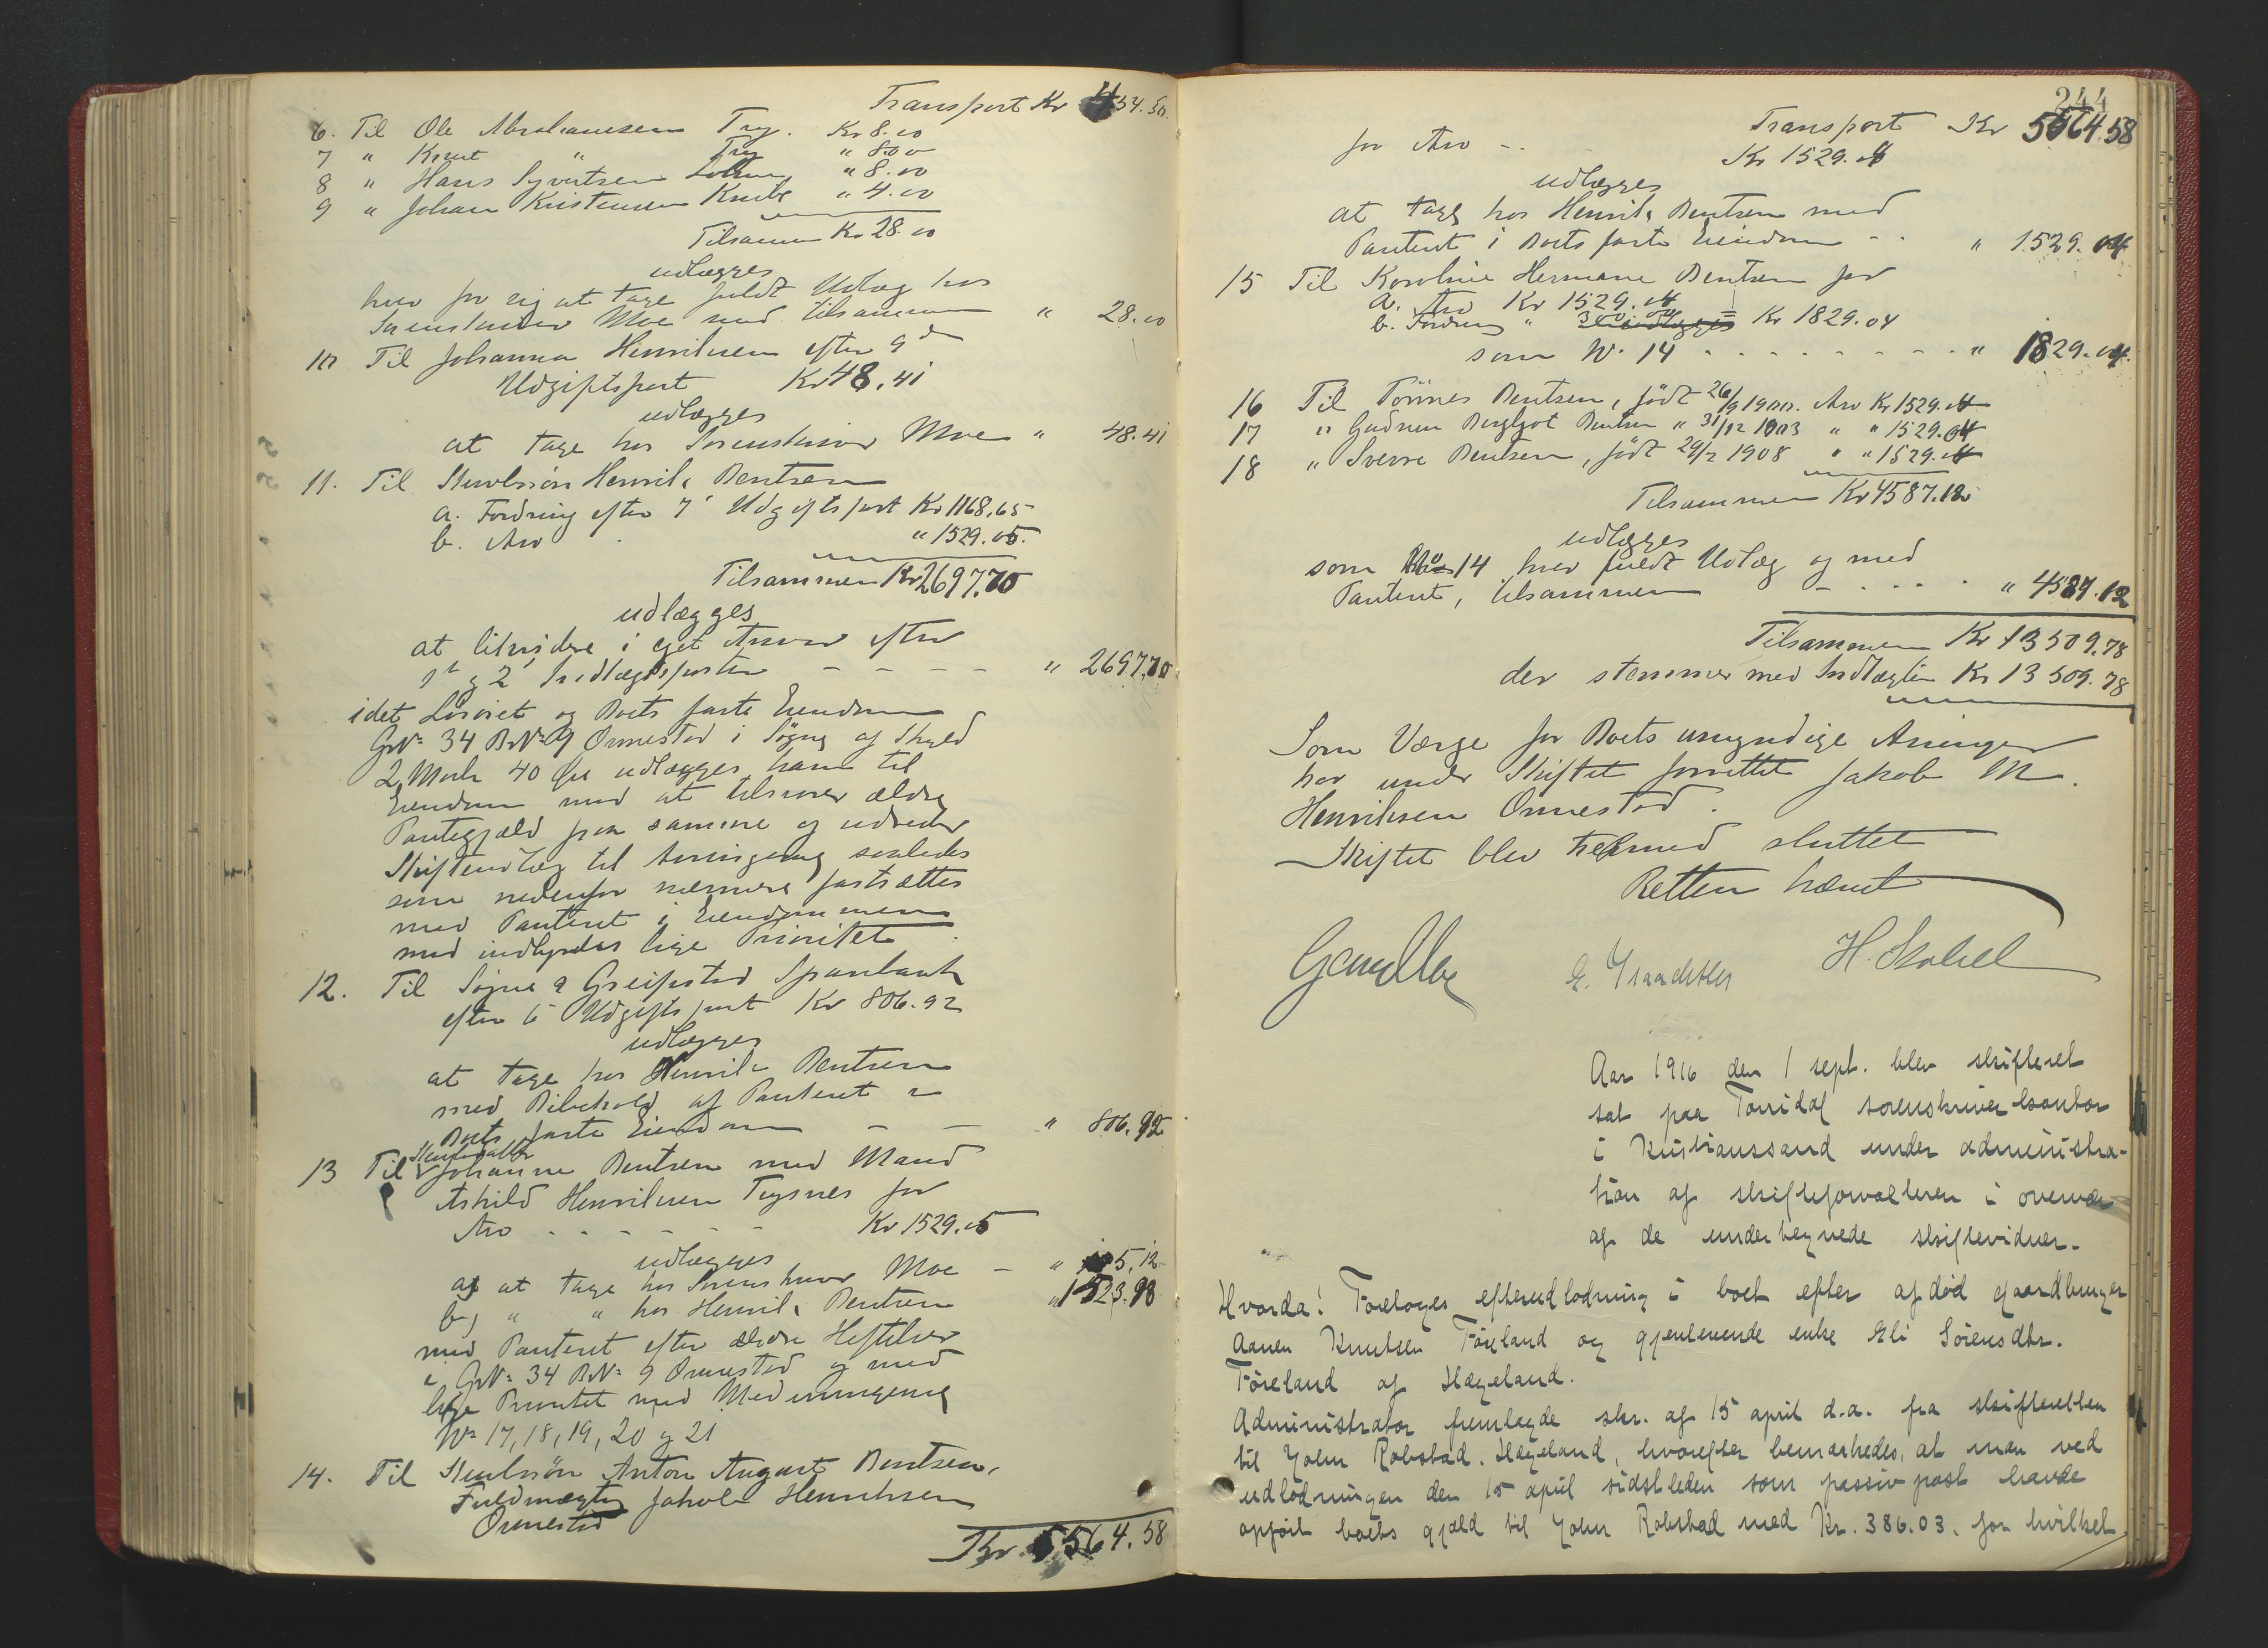 Transport Kr 454.50.
6. Til Ole Abrahamsen Try. Kr 8.00
7 " Knut " Try " 8.00
8 " Hans Syvertsen " 8.00
9 " Johan Kristensen Knibe " 4.00
Tilsammen Kr 28.00
udlægges
hver for sig at tage fuldt Udlæg hos
Sorenskriver Moe med tilsammen " 28.00
10 Til Johanna Henriksen efter 9de
Udgiftspost Kr 48.41
udlægges
at tage hos Sorenskriver Moe " 48.41
11. Til Henrik Bentsen
a. Fordring efter 7' Udgiftspost Kr 1168.65
b. Arv " 1529.05.
Tilsammen Kr 2697.70
udlægges
at likvidere i eget Ansvar efter
1st og 2' Indtægtsposter - - - - " 2697.70
idet Løsøret og Boets faste Eiendom
GrNo 34 BrNo 9 Ormestad i Søgne af Skyld
2 Mark 40 Øre udlægges ham til
Eiendom mod at tilsvare ældre
Pantegjæld paa samme og udrede
Skifteudlæg til Arvingerne saaledes
som nedenfor nærmere fastsættes
med Panteret i Eiendommen
med indbyrdes lige Prioritet.
12. Til Søgne & Greipstad Sparebank
efter 6' Udgiftspost Kr 806.92
udlægges
at tage hos Henrik Bentsen
med Bibehold af Panteret i
Boets faste Eiendom - - " 806.92
13 Til Johanne Bentsen med Mand
Askild Henriksen Trysnes for
Arv - - - - - - Kr 1529.05
udlægges
a) at tage hos Sorenskriver Moe - " 5,12
b) " " hos Henrik Bentsen " 1523.93
med Panteret efter ældre Heftelser
i GrNo 34 BrNo 9 Ormestad og med
lige Prioritet med Medarvingerne
No 17, 18, 19, 20 og 21
14. Til Anton August Bentsen,
Fuldmægtig Jakob Henriksen
Ormestad
Kr 5564.58
244
Transport Kr 5564.58
for Arv - - Kr 1529.04
udlægges
at tage hos Henrik Bentsen med
Panteret i Boets faste Eiendom - - " 1529.04
15 Til Karoline Hermane Bentsen for
a. Arv Kr 1529.04
b. Fordring " 300.00 Kr 1829.04
som No 14 - - - - - - - - " 1829.04.
16 Til Tönnes Bentsen, født 26/9 1900. Arv Kr 1529.04
17 " Gudrun Bergljot Bentsen " 31/12 1903 " " 1529.04
18 " Sverre Bentsen, født 29/2 1908 " " 1529.04
Tilsammen Kr 4587.12
udlægges
som No 14 hver fuldt Udlæg og med
Panteret, tilsammen - - - - " 4587.12
Tilsammen Kr 13509.78
der stemmer med Indtægten Kr 13509.78
Som Værge for Boets umyndige Arvinger
har under Skiftet forrettet Jakob M.
Henriksen Ormestad.
Skiftet blev hermed sluttet
Retten hævet
H. Skobel
Aar 1916 den 1 sept. blev skifteret
sat paa Torridal sorenskriverkontor
i Kristianssand under administra-
tion af skifteforvalteren i overvær
af de undertegnede skiftevidner.
Hvorda: Foretoges efterudlodning i boet efter afdød gaardbruger
Aanen Knutsen Føreland og gjenlevende enke Eli Sörensdtr.
Föreland af Hægeland.
Administrator fremlagde skr. af 15 april d.a. fra skifteretten
til John Robstad, Hægeland, hvorefter bemærkedes, at man ved
udlodningen den 15 april sidstleden som passivpost havde
opført boets gjæld til John Robstad med Kr. 386.03. for hvilket